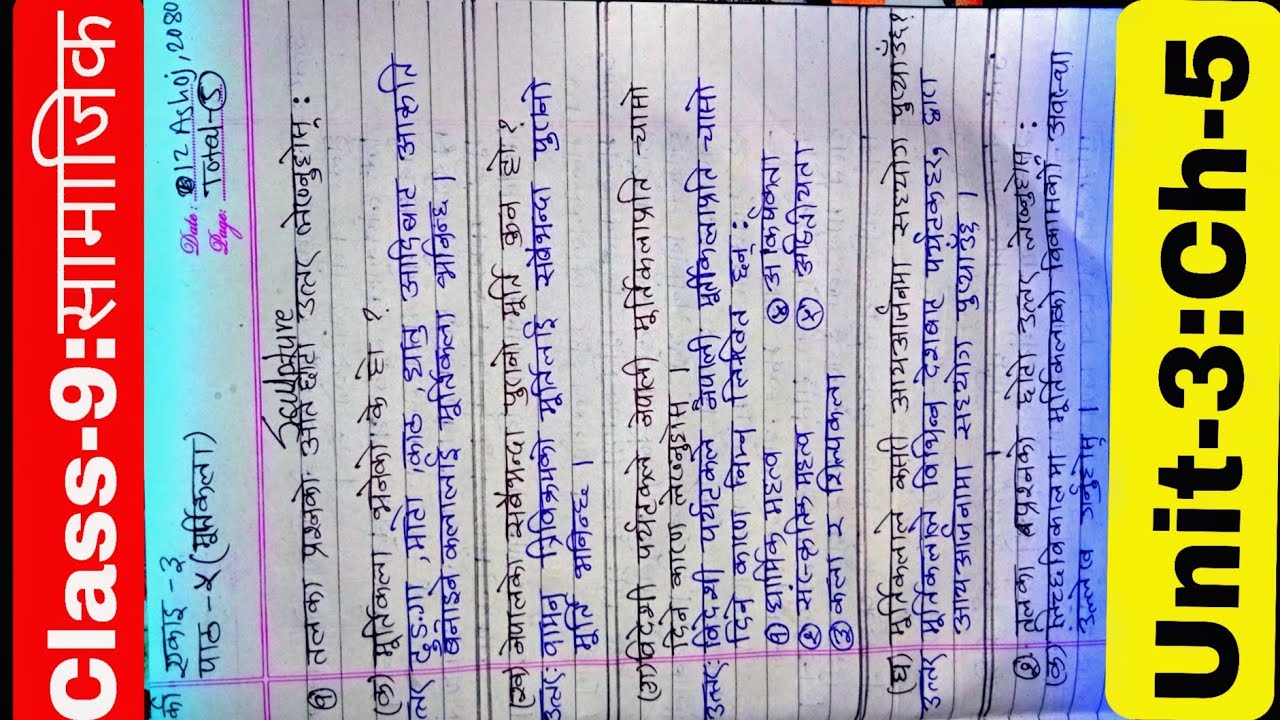 Class-9:सामाजिक
Date: 12 Ashoj, 2080
Page: Total-5
एकाइ-३
पाठ-५ (मूर्तिकला)
Sculpture
१ तलका प्रश्नको अति छोटो उत्तर लेख्नुहोस् :
(क) मूर्तिकला भनेको के हो ?
ढुङ्गा, माटो, काठ, धातु आदिबाट आकृति
बनाइने कलालाई मूर्तिकला भनिन्छ ।
(ख) नेपालको सबैभन्दा पुरानो मूर्ति कुन हो ?
उत्तर: वामन त्रिविक्रमको मूर्तिलाई सबैभन्दा पुरानो
मूर्ति भनिन्छ ।
(ग) विदेशी पर्यटकले नेपाली मूर्तिकलाप्रति चासो
दिने कारण लेख्नुहोस ।
उत्तर: विदेशी पर्यटकले नेपाली मूर्तिकलाप्रति चासो
दिने कारण निम्न लिखित छन् :
१ धार्मिक महत्व ४ आकर्षकता
२ सांस्कृतिक महत्व ५ अद्वितीयता
३ कला र शिल्पकला
(घ) मूर्तिकलाले कसरी आयआर्जनमा सहयोग पुर्‍याउँछ?
उत्तर मूर्तिकलाले विभिन्न देशबाट पर्यटकहरु
आयआर्जनमा सहयोग पुर्‍याउँछ ।
२ तलका प्रश्नको छोटो उत्तर लेख्नुहोस :
(क) लिच्छविकालमा मूर्तिकलाको विकासको अवस्था
उल्लेख गर्नुहोस् ।
Unit-3:Ch-5